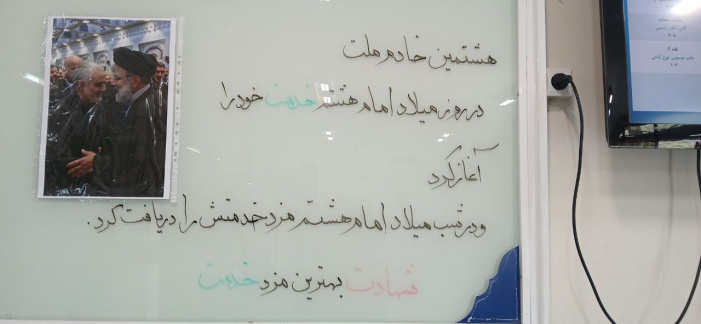 هشتمین خادم ملت
در روز میلاد امام هشتم خدمت خود را
آغاز کرد
و در شب میلاد امام هشتم مزد خدمتش را دریافت کرد.
شهادت بهترین مزد خدمت